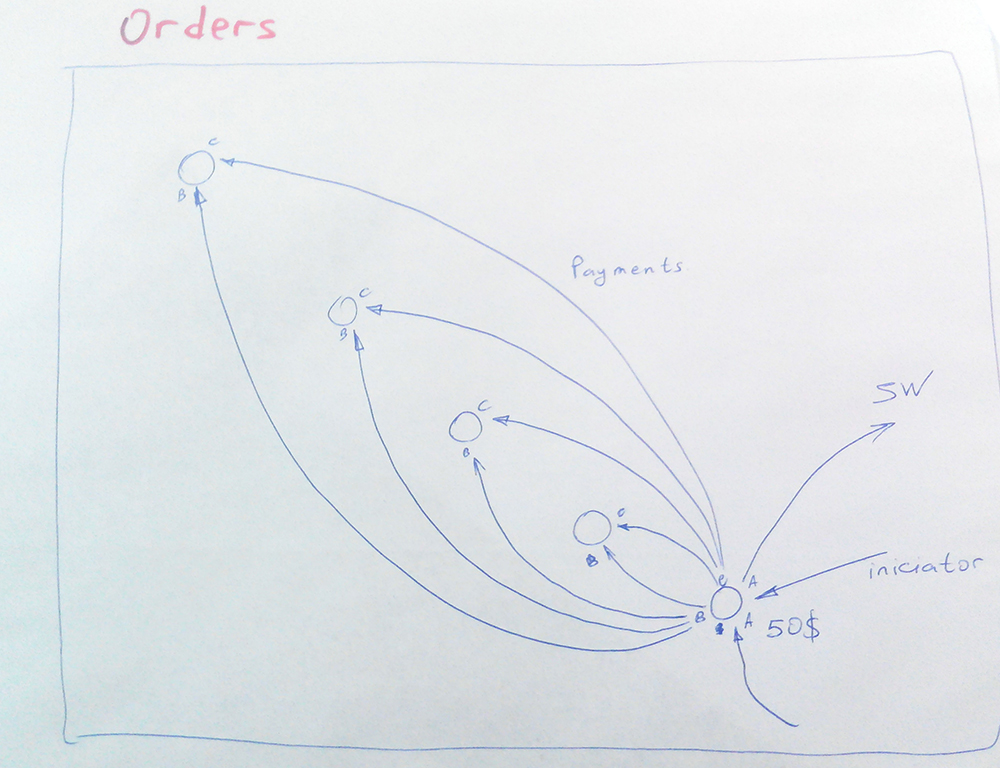 Orders
C
B
Payments
C
B
SW
C
B
C
B
iniciator
C A
B A 50$